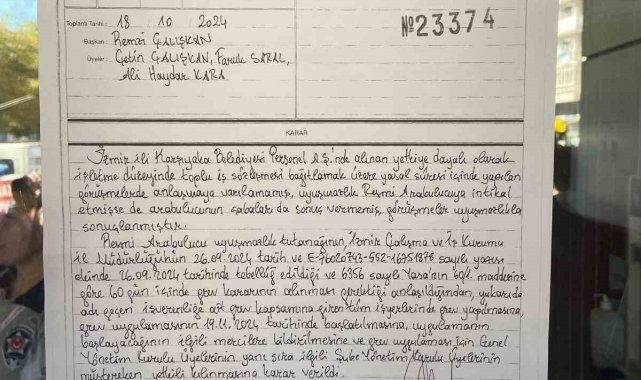 Toplantı Tarihi : 18 10 2024
№23374
Başkan : Remzi ÇALIŞKAN
Üyeler : Çetin ÇALIŞKAN, Faruk SARAL,
Ali Haydar KARA
KARAR
İzmir ili Karşıyaka Belediyesi Personel A.Ş.'nde alınan yetkiye dayalı olarak
işletme düzeyinde toplu iş sözleşmesi bağıtlamak üzere yasal süresi içinde yapılan
görüşmelerde anlaşmaya varılamamış, uyuşmazlık Resmi Arabulucuya intikal
etmişse de arabulucunun çabaları da sonuç vermemiş, görüşmeler uyuşmazlıkla
sonuçlanmıştır.
Resmi Arabulucu uyuşmazlık tutanağının, İzmir Çalışma ve İş Kurumu
İl Müdürlüğünün 26.09.2024 tarih ve sayılı yazısı
ekinde 26.09.2024 tarihinde tebellüğ edildiği ve 6356 sayılı Yasa'nın 60/1. maddesine
göre 60 gün içinde grev kararının alınması gerektiği anlaşıldığından, yukarıda
adı geçen işverenliğe ait grev kapsamına giren tüm işyerlerinde grev yapılmasına,
grev uygulamasının 19.11.2024 tarihinde başlatılmasına, uygulamanın
başlayacağının ilgili mercilere bildirilmesine ve grev uygulaması için Genel
Yönetim Kurulu Üyelerinin yanı sıra ilgili Şube Yönetim Kurulu Üyelerinin
müştereken yetkili kılınmasına karar verildi.